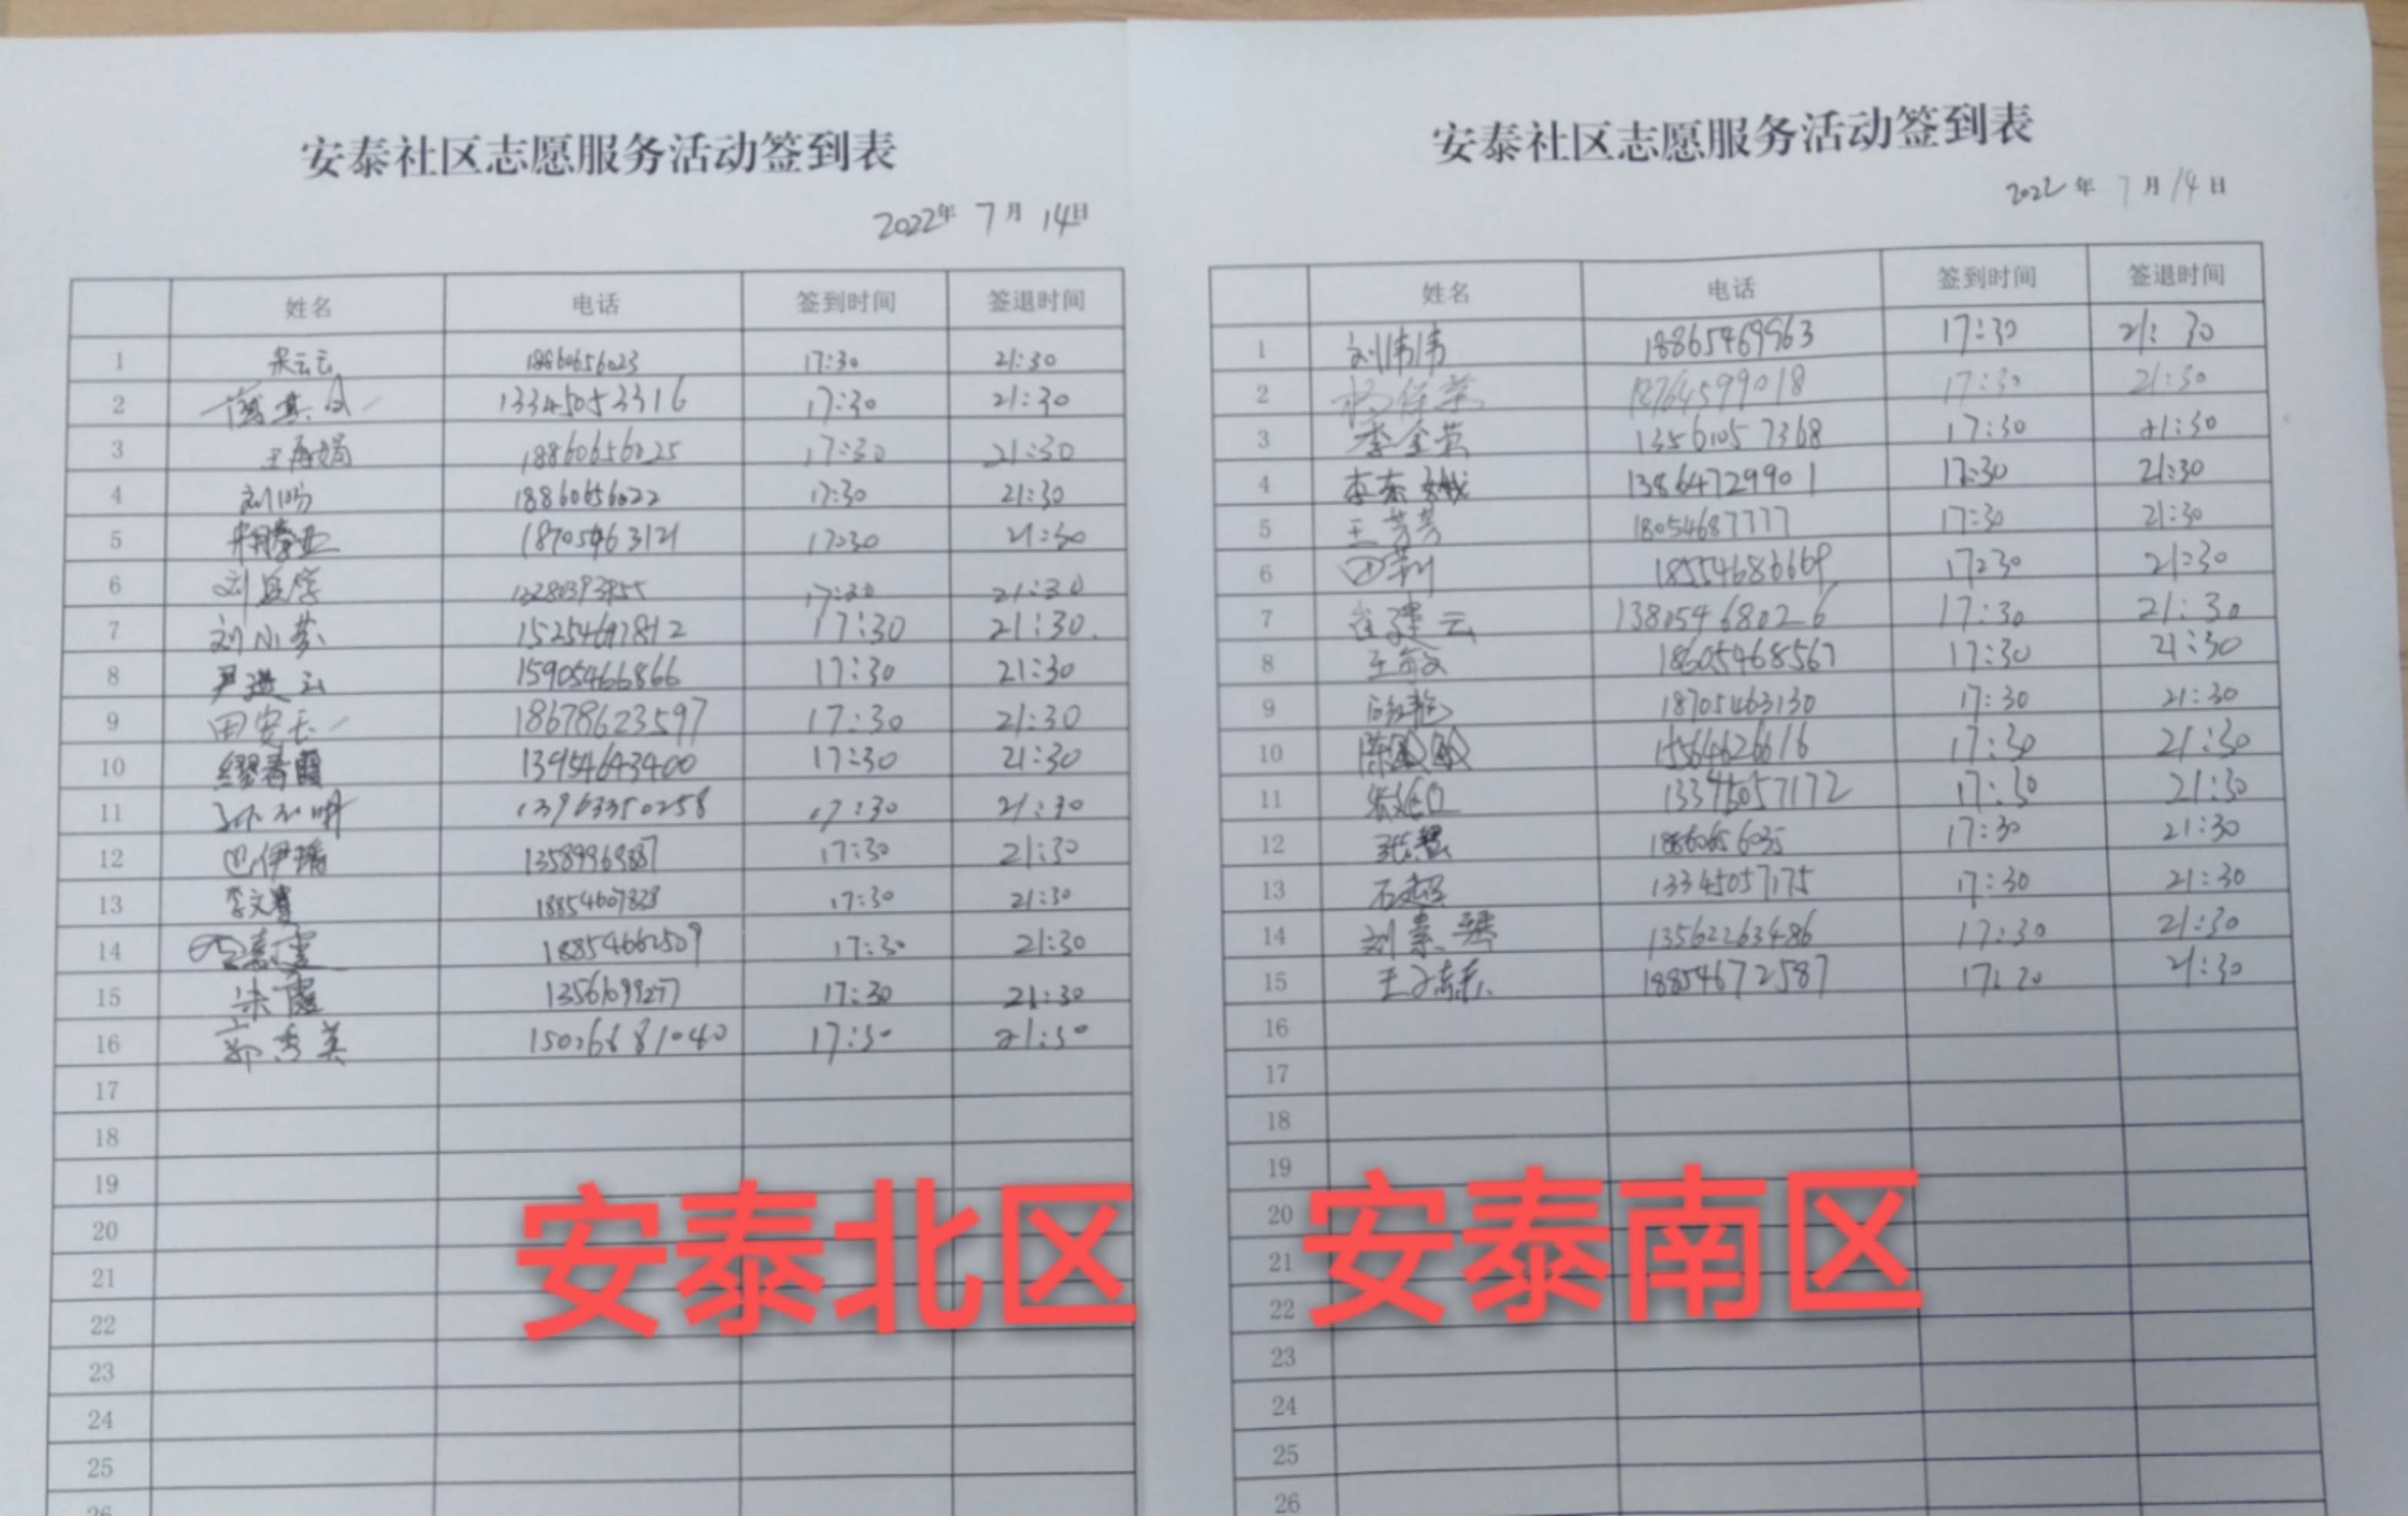 安泰社区志愿服务活动签到表
2022年 7月 14日
姓名 电话 签到时间 签退时间
1 宋云云 18860656023 17:30 21:30
2 13345053316 17:30 21:30
3 王再娟 18860656025 17:30 21:30
4 18860656022 17:30 21:30
5 18705463121 17:30 21:30
6 17:30 21:30
7 刘小芬 15254697812 17:30 21:30.
8 尹进云 15905466866 17:30 21:30
9 田安云 18678623597 17:30 21:30
10 缪春霞 13954643400 17:30 21:30
11 13963350258 17:30 21:30
12 巴伊璠 17:30 21:30
13 李文 18854607828 17:30 21:30
14 18854662509 17:30 21:30
15 宋霞 13561099277 17:30 21:30
16 郭秀美 17:30 21:30
17
18
19
20
21
22
23
24
25
26
安泰北区
安泰社区志愿服务活动签到表
2022年 7月14日
姓名 电话 签到时间 签退时间
1 刘伟伟 18865469963 17:30 21:30
2 杨 18764599018 17:30 21:30
3 李金英 13561057368 17:30 21:30
4 李东 13864729901 17:30 21:30
5 王芳芳 18054687777 17:30 21:30
6 田莉 18554686669 17:30 21:30
7 崔建云 13805468026 17:30 21:30
8 王敏 18605468567 17:30 21:30
9 18705463130 17:30 21:30
10 陈 15564626616 17:30 21:30
11 13345057172 17:30 21:30
12 张 18860656035 17:30 21:30
13 石超 13345057175 17:30 21:30
14 刘素琴 13562263486 17:30 21:30
15 王 18854672587 17:30 21:30
16
17
18
19
20
21
22
23
24
25
26
安泰南区